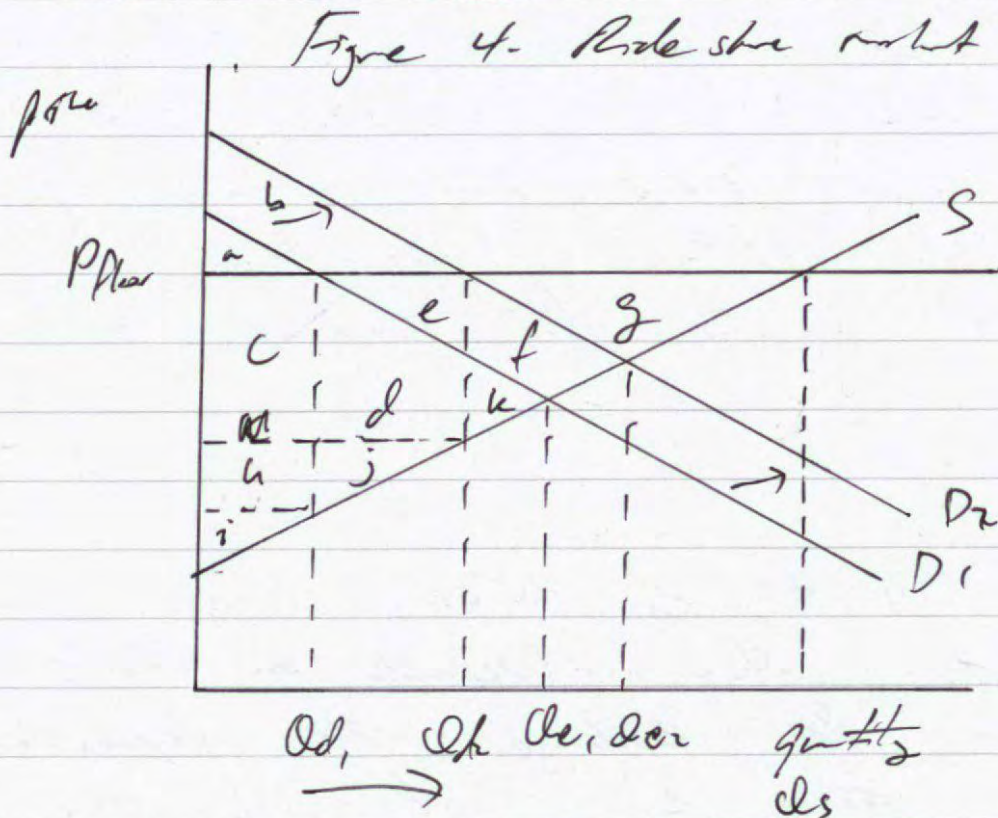 Figure 4. Ride share market
price
b
S
a
P floor
e
g
c
f
d
k
h
j
i
D2
D1
Qd1 Qd2 Qe1 Qe2 quantity
Qs